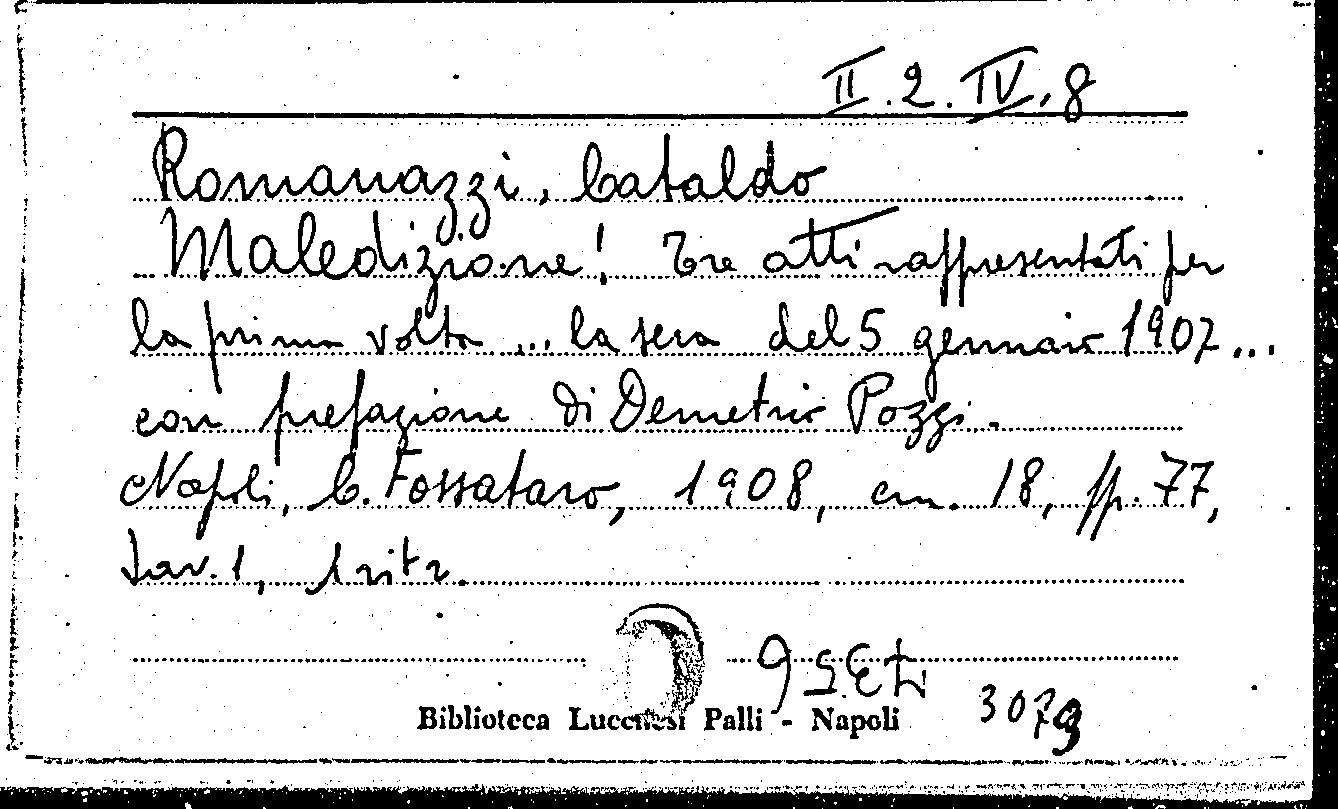 II.2.IV.8
Romanazzi, Cataldo
Maledizione! Tre atti rappresentati per
la prima volta ... la sera del 5 gennaio 1907 ...
con prefazione di Demetrio Pozzi.
Napoli, C. Fossataro, 1908, cm. 18, pp. 77,
tav. 1, 1 ritr.
3079
Biblioteca Lucchesi Palli - Napoli